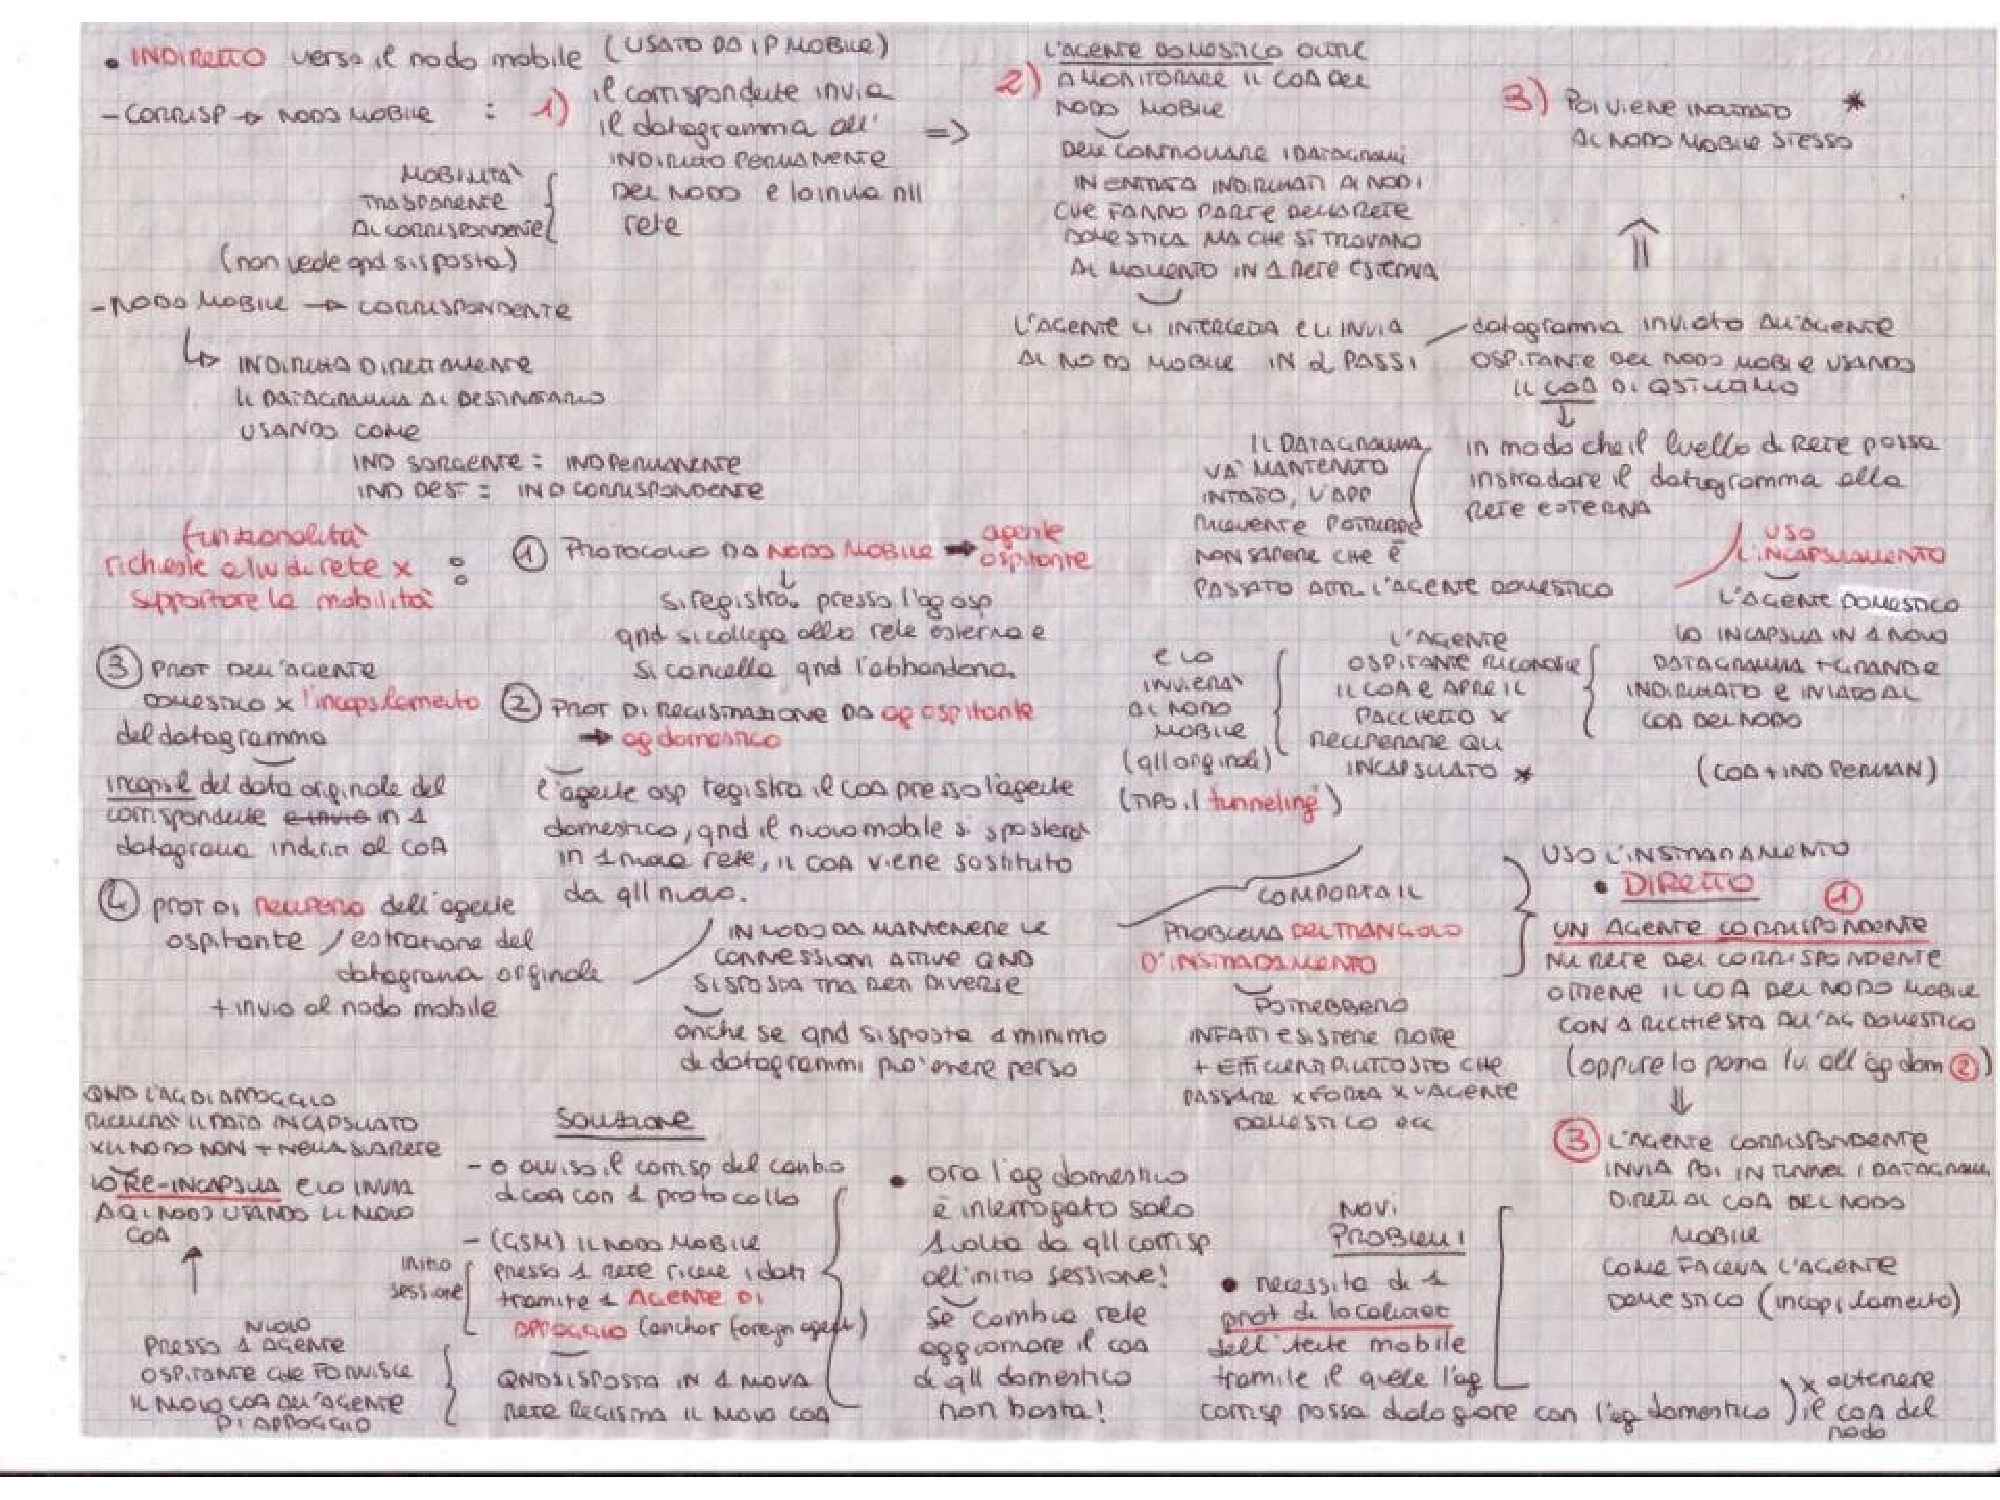 • INDIRETTO verso il nodo mobile (USATO DA IP MOBILE)
- CORRISP → NODO MOBILE : 1) il corrispondente invia
il datogramma all'
INDIRIZZO PERMANENTE
DEL NODO e lo invia nll
rete
MOBILITA'
TRASPARENTE
AL CORRISPONDENTE
(non vede qnd si sposta)
=>
2) L'AGENTE DOMESTICO OLTRE
A MONITORARE IL COA DEL
NODO MOBILE
DEVE CONTROLLARE I DATAGRAMMI
IN ENTRATA INDIRIZZATI AI NODI
CHE FANNO PARTE DELLA RETE
DOMESTICA MA CHE SI TROVANO
AL MOMENTO IN 1 RETE ESTERNA
L'AGENTE LI INTERCEDA E LI INVIA
AL NODO MOBILE IN 2 PASSI
3) POI VIENE INOLTRATO *
AL NODO MOBILE STESSO
datogramma inviato ALL'AGENTE
OSPITANTE DEL NODO MOBILE USANDO
IL COA DI QST'ULTIMO
in modo che il livello di RETE possa
instradare il datagramma alla
RETE ESTERNA
IL DATAGRAMMA
VA' MANTENUTO
INTATTO, L'APP
RICEVENTE POTREBBE
NON SAPERE CHE È
PASSATO ATTR L'AGENTE DOMESTICO
USO
L'INCAPSULAMENTO
L'AGENTE DOMESTICO
LO INCAPSULA IN 1 NUOVO
DATAGRAMMA + GRANDE
INDIRIZZATO E INVIATO AL
COA DEL NODO
(COA + IND PERMAN)
L'AGENTE
OSPITANTE RICONOSCE
IL COA E APRE IL
PACCHETTO X
RECUPERARE QLL
INCAPSULATO *
E LO
INVIERA'
AL NODO
MOBILE
(qll originale)
(TIPO il tunneling)
- NODO MOBILE → CORRISPONDENTE
INDIRIZZA DIRETTAMENTE
IL DATAGRAMMA AL DESTINATARIO
USANDO COME
IND SORGENTE = IND PERMANENTE
IND DEST = IND CORRISPONDENTE
funzionalità
richieste a liv di rete x
supportare la mobilità :
① PROTOCOLLO DA NODO MOBILE → agente
ospitante
si registra presso l'ag osp
qnd si collega alla rete esterna e
si cancella qnd l'abbandona.
② PROT DI REGISTRAZIONE DA ag ospitante
→ ag domestico
l'agente osp registra il coa presso l'agente
domestico, qnd il nuovo mobile si sposterà
in 1 nuova rete, il COA viene sostituto
da qll nuovo.
③ PROT DELL'AGENTE
DOMESTICO X l'incapsulamento
del datogramma
incapsul del data originale del
corrispondente e invio in 1
datagrama indiriz al COA
④ PROT DI RECUPERO dell'agente
ospitante / estrazione del
datagrama originale
+ invio al nodo mobile
IN MODO DA MANTENERE LE
CONNESSIONI ATTIVE QND
SI SPOSTA TRA RETI DIVERSE
anche se qnd si sposta 1 minimo
di datagrammi può essere perso
USO L'INSTRADAMENTO
• DIRETTO ①
UN AGENTE CORRISPONDENTE
NLL RETE DEL CORRISPONDENTE
OTTIENE IL COA DEL NODO MOBILE
CON 1 RICHIESTA ALL'AG DOMESTICO
(oppure lo passa lui all'ag dom ②)
⇓
③ L'AGENTE CORRISPONDENTE
INVIA POI IN TUNNEL I DATAGRAMM.
DIRETTI AL COA DEL NODO
MOBILE
COME FACEVA L'AGENTE
DOMESTICO (incapsulamento)
COMPORTA IL
PROBLEMA DEL TRIANGOLO
D'INSTRADAMENTO
POTREBBERO
INFATTI ESISTERE ROTTE
+ EFFICIENTI PIUTTOSTO CHE
PASSARE X FORZA X L'AGENTE
DOMESTICO ecc
NUOVI
PROBLEMI
• necessito di 1
prot di localizzaz
dell'utente mobile
tramite il quale l'ag
corrisp possa dialogare con l'ag domestico) x ottenere
il COA del
nodo
• ora l'ag domestico
è interrogato solo
1 volta da qll corrisp
all'inizio sessione!
Se cambia rete
aggiornare il coa
di qll domestico
non basta!
SOLUZIONE
- o avviso il corrisp del cambio
di coa con 1 protocollo
- (GSM) IL NODO MOBILE
presso 1 rete riceve i dati
tramite 1 AGENTE DI
APPOGGIO (anchor foreign agent)
inizio
sessione
QND SI SPOSTA IN 1 NUOVA
RETE REGISTRA IL NUOVO COA
PRESSO 1 NUOVO AGENTE
OSPITANTE CHE FORNISCE
IL NUOVO COA ALL'AGENTE
DI APPOGGIO
QND L'AG DI APPOGGIO
RICEVERA' IL DATO INCAPSULATO
X UN NODO NON + NELLA SUA RETE
LO RE-INCAPSULA E LO INVIA
A QL NODO USANDO IL NUOVO
COA